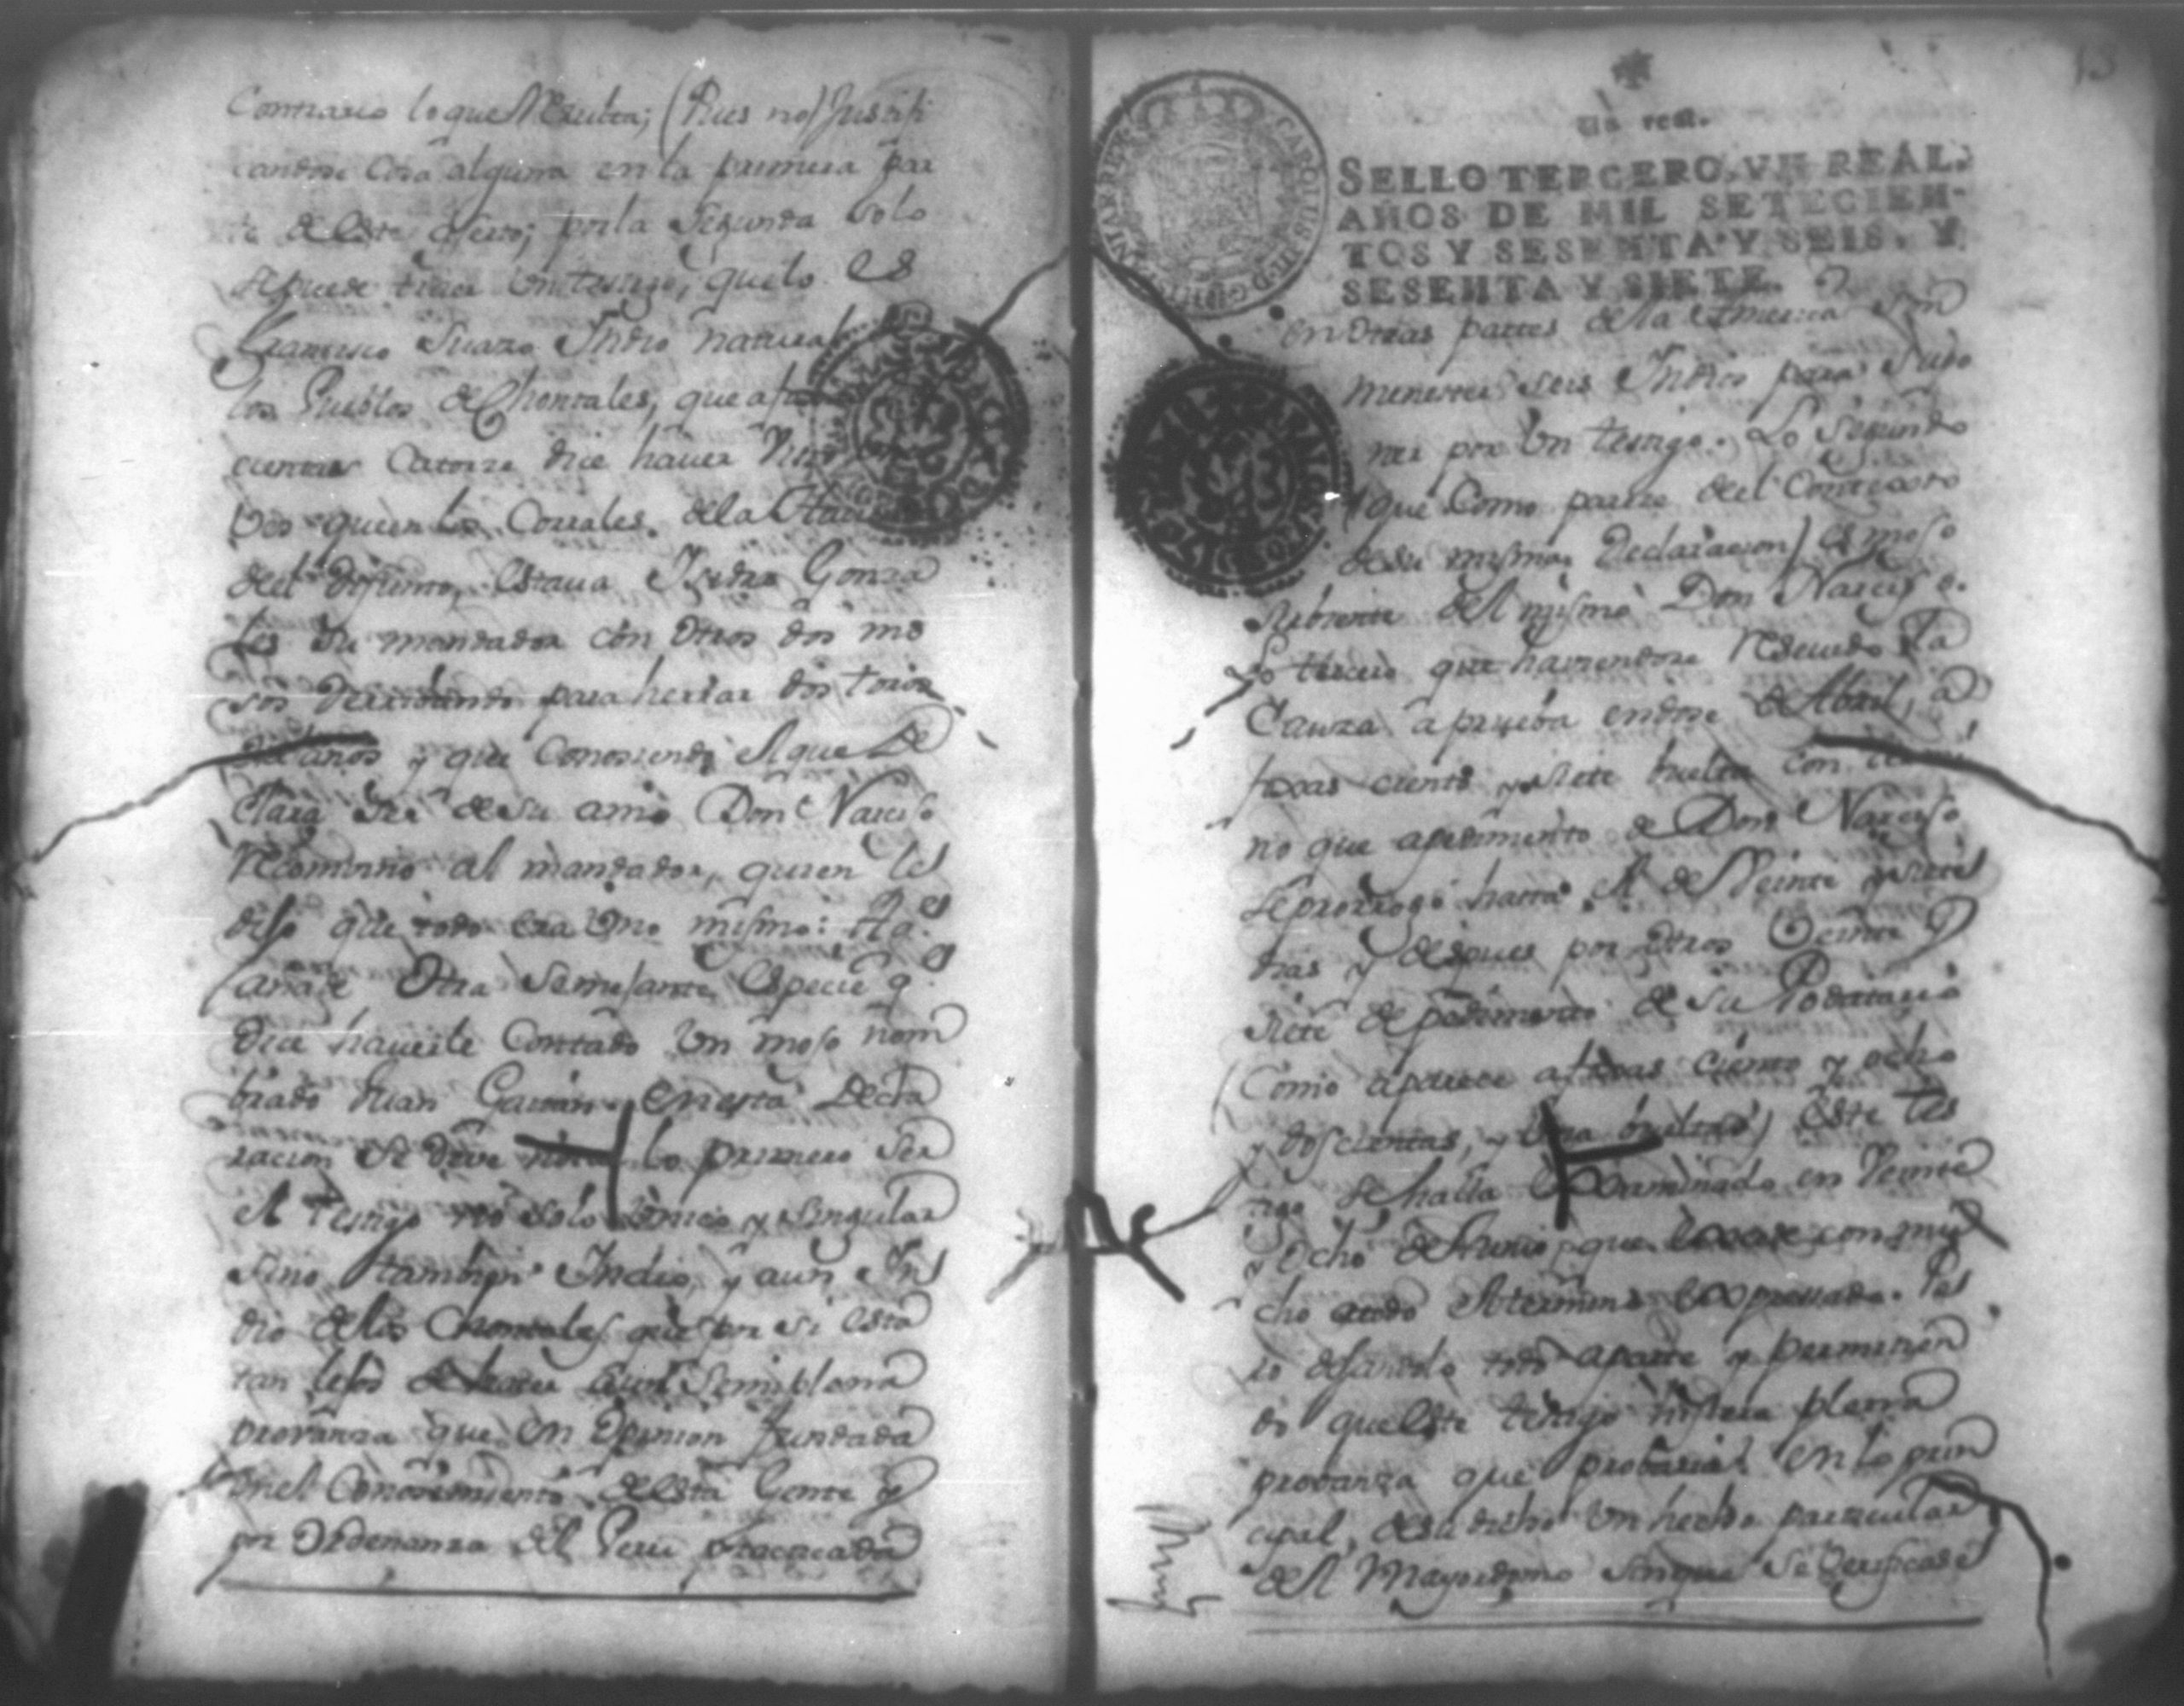 Contrario lo que Resulta; (Pues no) Justifi
candose cosa alguna en la primera par
te de este aserto; por la segunda solo
se puede traer un testigo, que lo es
Francisco Suazo Indio natural
los Pueblos de Chontales, que a foxas
cientas Catorze dice haver visto
Uio que en los Corrales de la Hacienda
del difunto, estaua Isidro Gonza
les su mandador con otros dos mo
sos derribando para herrar dos toros
y que Conosiendo el que De
clara de su amo Don Narciso
Recombino al mandador, quien les
dijo que todo era uno mismo:
añade otra semejante especie q.e
dice haverle Contado un moso nom
brado Juan Gaitan. En esta Decla
racion se deve notar lo primero ser
el testigo no solo unico y singular
sino tambien Indio, y aun In
dio de los Chontales que por si esta
tan lejos de hacer aun semiplena
provanza que en opinion fundada
en el Conosimiento de esta Gente y
por ordenanza del Peru practicada
13
Un real.
SELLO TERCERO, VN REAL,
AÑOS DE MIL SETECIEN-
TOS Y SESENTA Y SEIS, Y
SESENTA Y SIETE.
en otras partes de la America son
menester seis Indios para supo
ner por un testigo. Lo Segundo
(que como parece del Contexto
de su misma Declaracion) es moso
sirbiente del mismo Don Narciso.
Lo tercero que haviendose Resevido la
Cauza a prueba en dose de Abril, a
foxas ciento y siete buelta con
no que a pedimento de Don Narciso
se prorrogó hasta el de Veinte y siete
dias y despues por otros Veinte y
siete de pedimento de su Podatario
Como aparece a foxas ciento y ocho
y doscientas, y una buelta) este tes
tigo se halla Examinado en Veinte
y ocho de Junio, que Excede con mu
cho a todo el termino Expresado. Pe
ro dejando todo aparte y permitien
do que este testigo hisiera plena
provanza que probaria? en lo prin
cipal, de su dicho un hecho particular
del Mayordomo sin que se Verificase